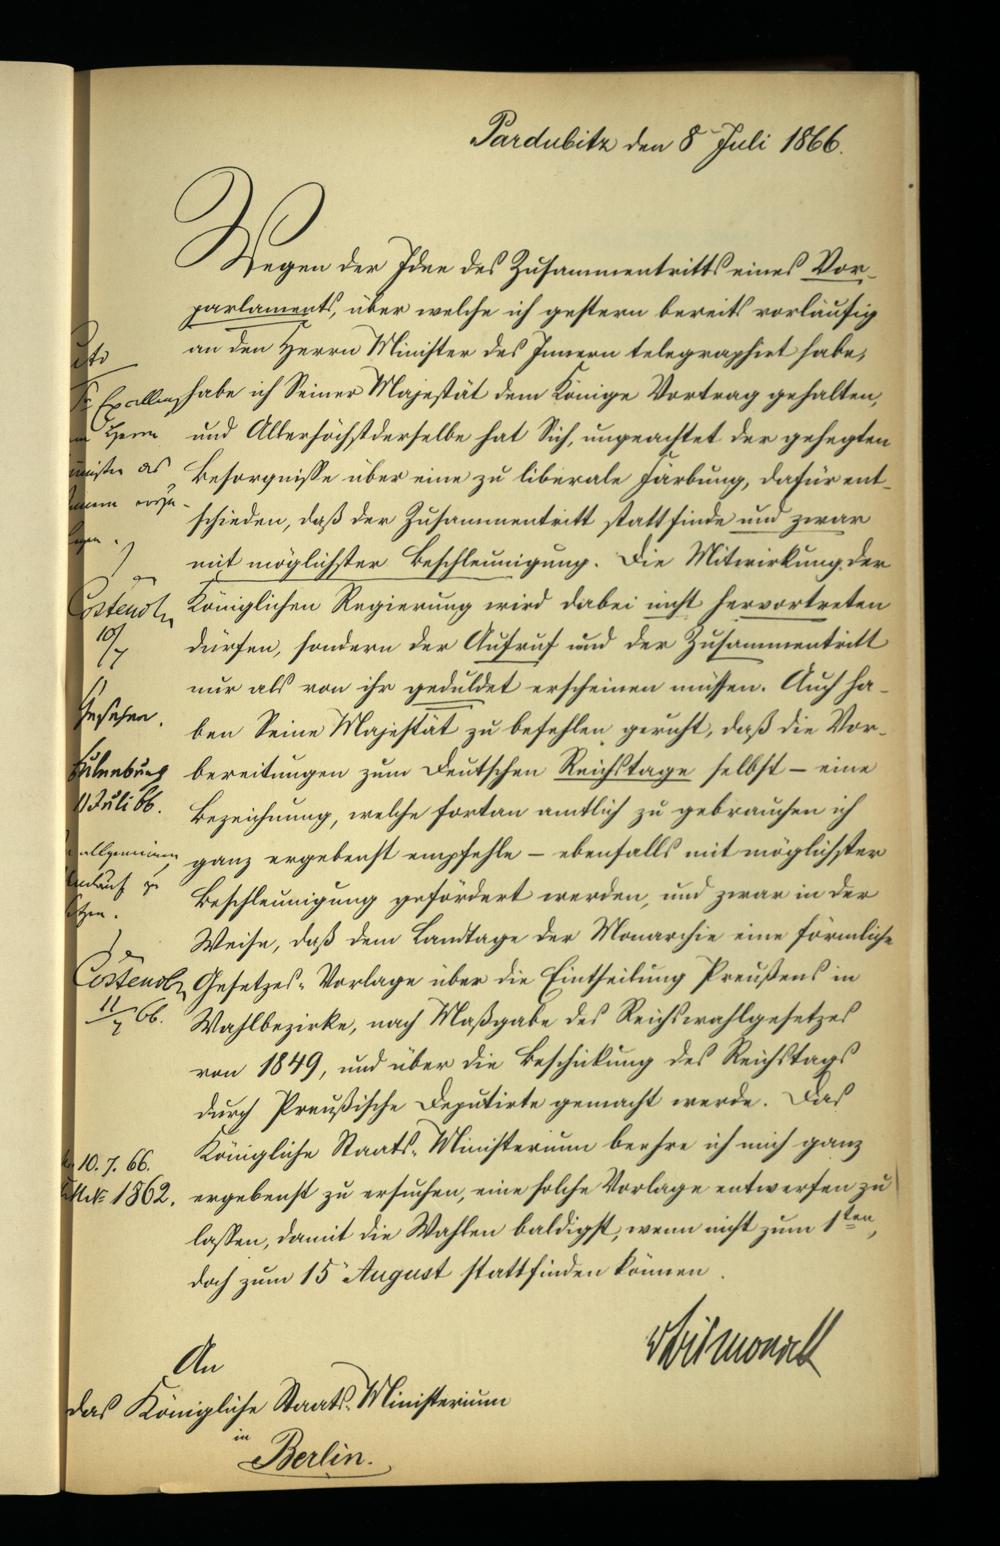 Pardubitz den 8 Juli 1866.
Wegen der Idee des Zusammentritts eines Vor-
parlaments, über welche ich gestern bereits vorläufig
an den Herrn Minister des Innern telegraphirt habe,
habe ich Seiner Majestät dem Könige Vortrag gehalten,
und Allerhöchstderselbe hat Sich, ungeachtet der gehegten
Besorgnisse über eine zu liberale Färbung, dafür ent-
schieden, daß der Zusammentritt stattfinde und zwar
mit möglichster Beschleunigung. Die Mitwirkung der
Königlichen Regierung wird dabei nicht hervortreten
dürfen, sondern der Aufruf und der Zusammentritt
nur als von ihr geduldet erscheinen müssen. Auch ha-
ben Seine Majestät zu befehlen geruht, daß die Vor-
bereitungen zum Deutschen Reichstage selbst – eine
Bezeichnung, welche fortan amtlich zu gebrauchen ich
ganz ergebenst empfehle – ebenfalls mit möglichster
Beschleunigung gefördert werden, und zwar in der
Weise, daß dem Landtage der Monarchie eine förmliche
Gesetzes-Vorlage über die Eintheilung Preußens in
Wahlbezirke, nach Maßgabe des Reichswahlgesetzes
von 1849, und über die Beschickung des Reichstags
durch Preußische Deputirte gemacht werde. Das
Königliche Staats-Ministerium beehre ich mich ganz
ergebenst zu ersuchen, eine solche Vorlage entwerfen zu
lassen, damit die Wahlen baldigst, wenn nicht zum 1ten,
doch zum 15 August stattfinden können.
vBismarck
An
das Königliche Staats-Ministerium
in
Berlin.
Excellenz
Herrn
Costenoble
10/7
Gesehen.
Eulenburg
11 Juli 66.
allgemeinen
Costenoble
11/7 66.
10. 7. 66.
№ 1862.